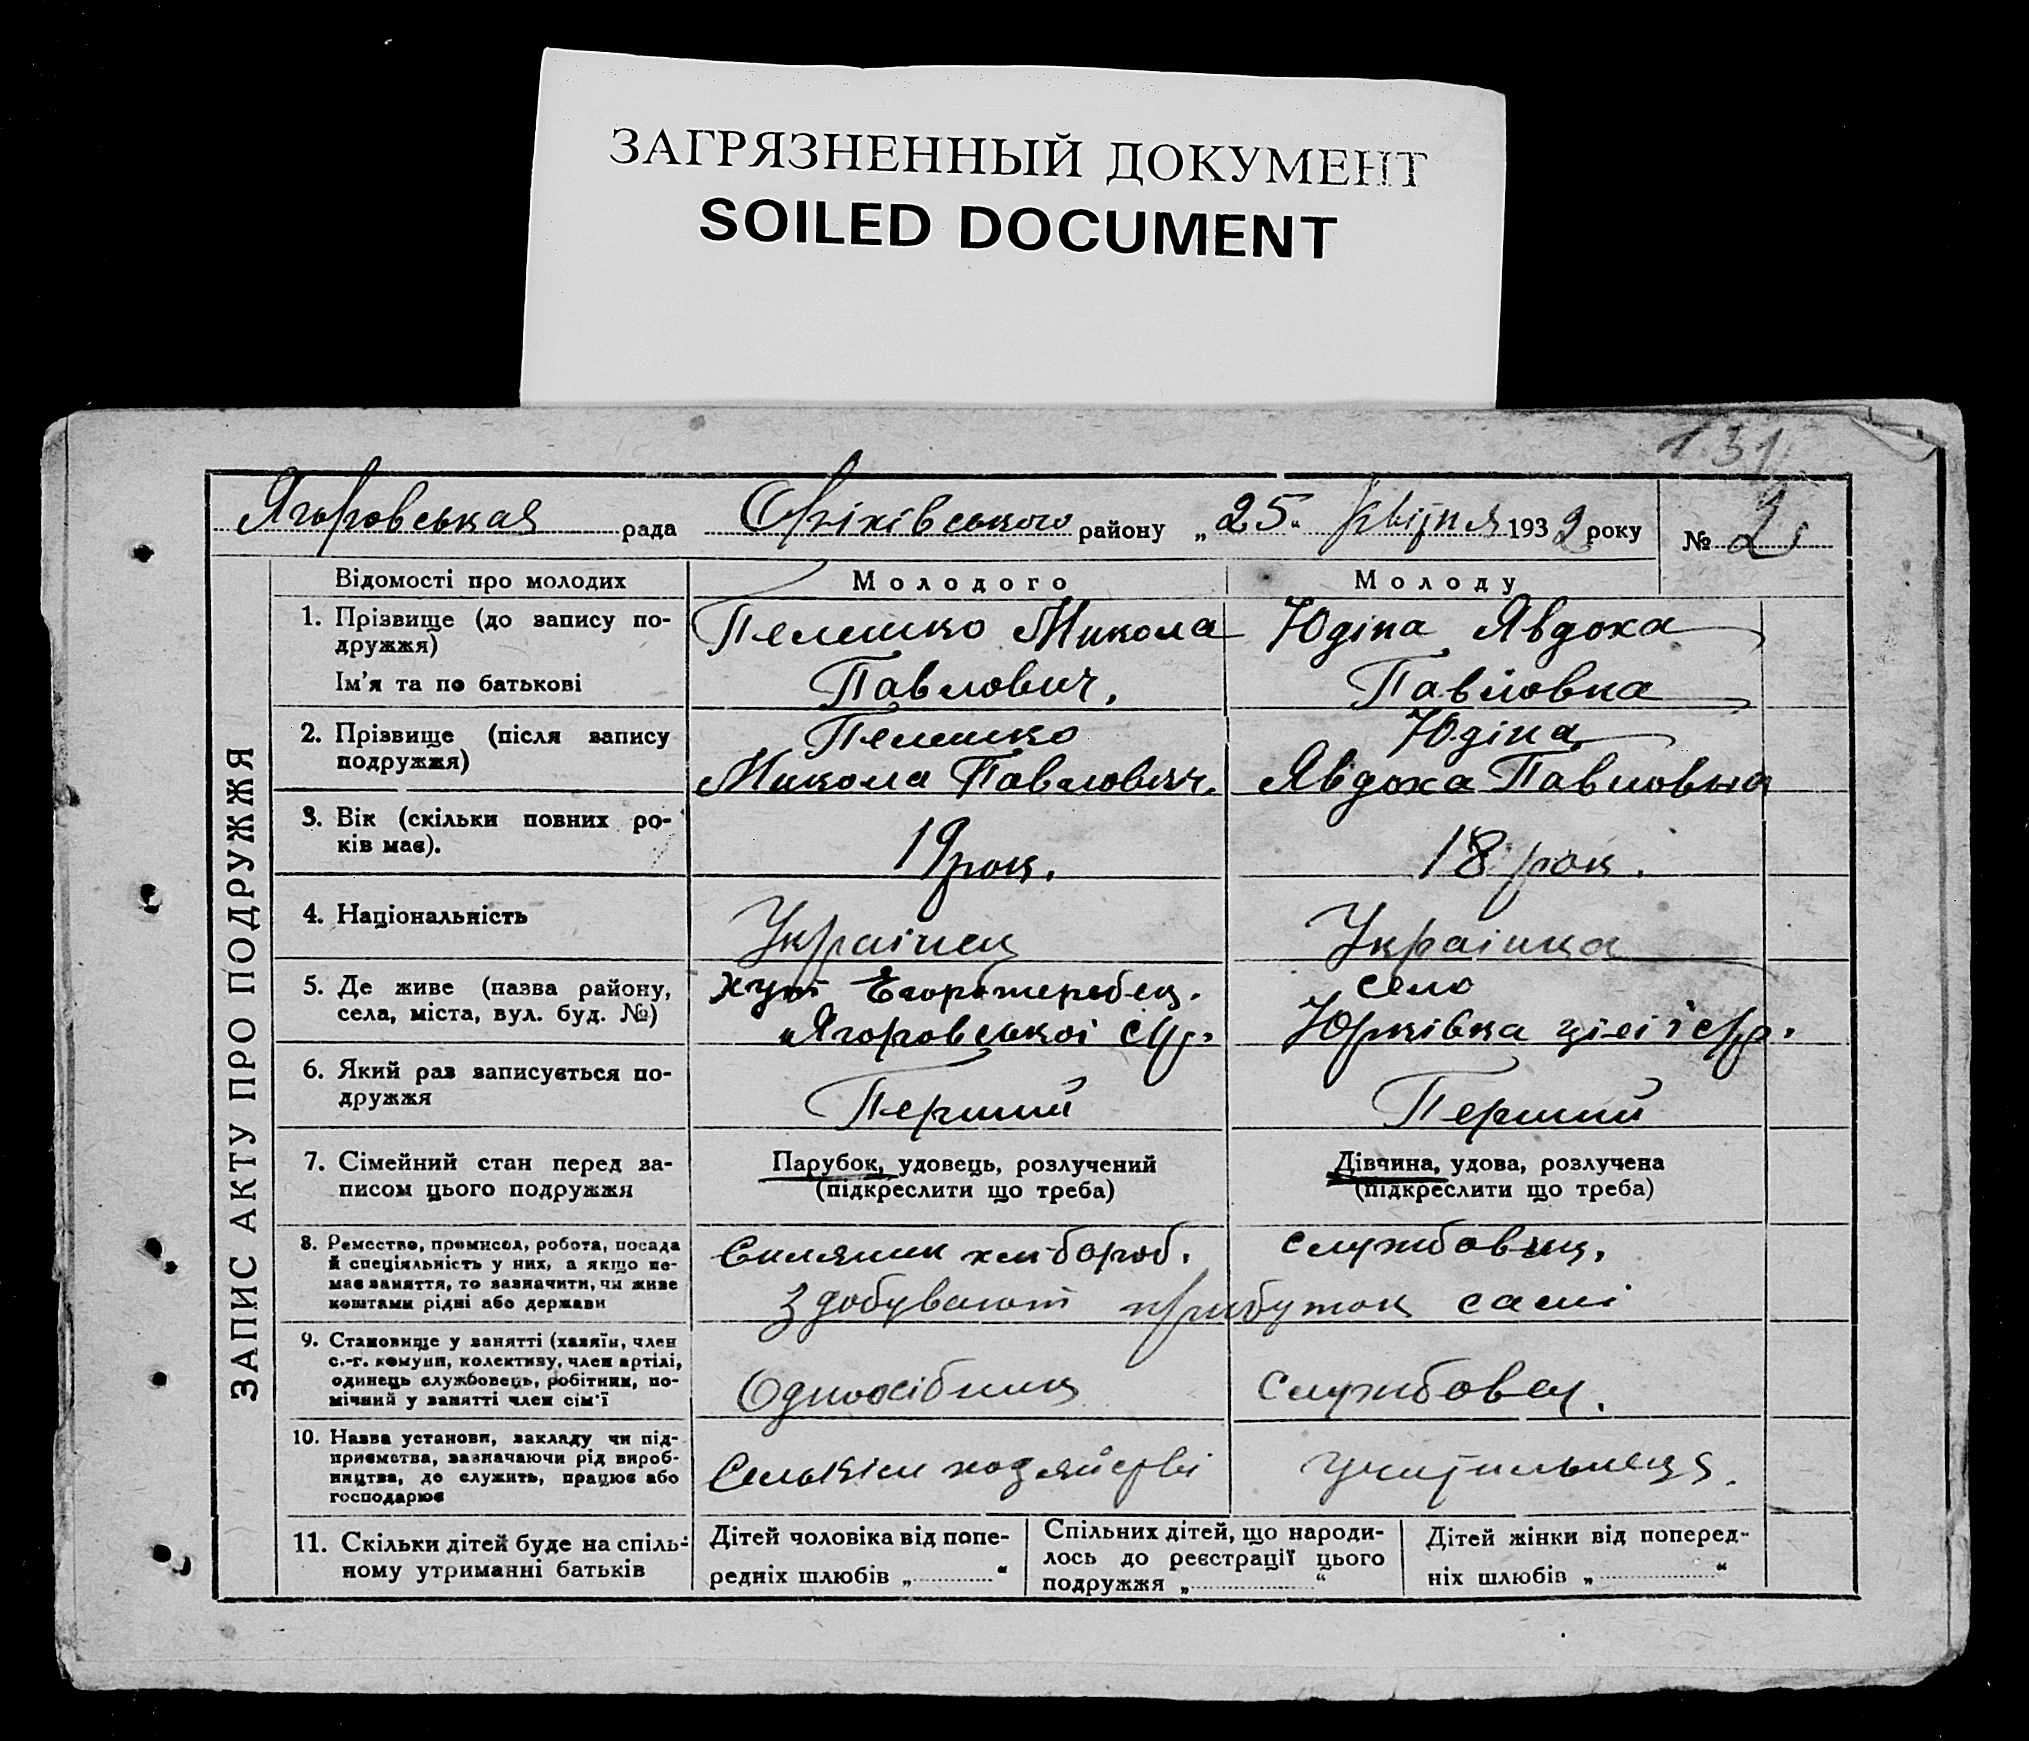 ЗАГРЯЗНЕННЫЙ ДОКУМЕНТ
SOILED DOCUMENT
131
Ягоровськая рада Оріхівського району „25“ квітня 1932 року № 2
ЗАПИС АКТУ ПРО ПОДРУЖЖЯ
Відомості про молодих Молодого Молоду
1. Прізвище (до запису по-
дружжя)
Ім'я та по батькові
Пелешко Микола
Павлович.
Юдіна Явдоха
Павловна
2. Прізвище (після запису
подружжя)
Пелешко
Микола Павлович.
Юдіна
Явдоха Павловна
3. Вік (скільки повних ро-
ків має).
19 рок.
18 рок.
4. Національність
Украінец
Украінка
5. Де живе (назва району,
села, міста, вул. буд. №)
хут
Ягоровськоі с/р.
село
Юрківка ціеі і с/р.
6. Який раз записується по-
дружжя
Перший
Перший
7. Сімейний стан перед за-
писом цього подружжя
Парубок, удовець, розлучений
(підкреслити що треба)
Дівчина, удова, розлучена
(підкреслити що треба)
8. Ремество, промисел, робота, посада
й спеціяльність у них, а якщо не-
має заняття, то зазначити, чи живе
коштами рідні або держави
Силяник хлібороб.
службовец.
здобувают прибуток самі
9. Становище у занятті (хазяїн, член
с.-г. комуни, колективу, член артілі,
одинець службовець, робітник, по-
мічний у занятті член сім'ї
Одноосібник
службовец.
10. Назва установи, закладу чи під-
приємства, зазначаючи рід вироб-
ництва, де служить, працює або
господарює
хозяйстві
учительница.
11. Скільки дітей буде на спіль-
ному утриманні батьків
Дітей чоловіка від попе-
редніх шлюбів „ “
Спільних дітей, що народи-
лось до реєстрації цього
подружжя „ “
Дітей жінки від поперед-
ніх шлюбів „ “